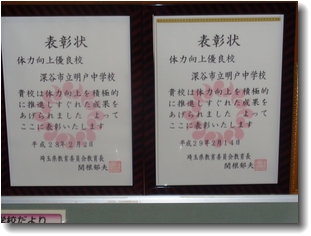 表彰状
体力向上優良校
深谷市立明戸中学校
貴校は体力向上を積極的
に推進しすぐれた成果を
あげられました よって
ここに表彰いたします
平成28年2月2日
埼玉県教育委員会教育長
関根郁夫
表彰状
体力向上優良校
深谷市立明戸中学校
貴校は体力向上を積極的
に推進しすぐれた成果を
あげられました よって
ここに表彰いたします
平成29年2月14日
埼玉県教育委員会教育長
関根郁夫
学校だより